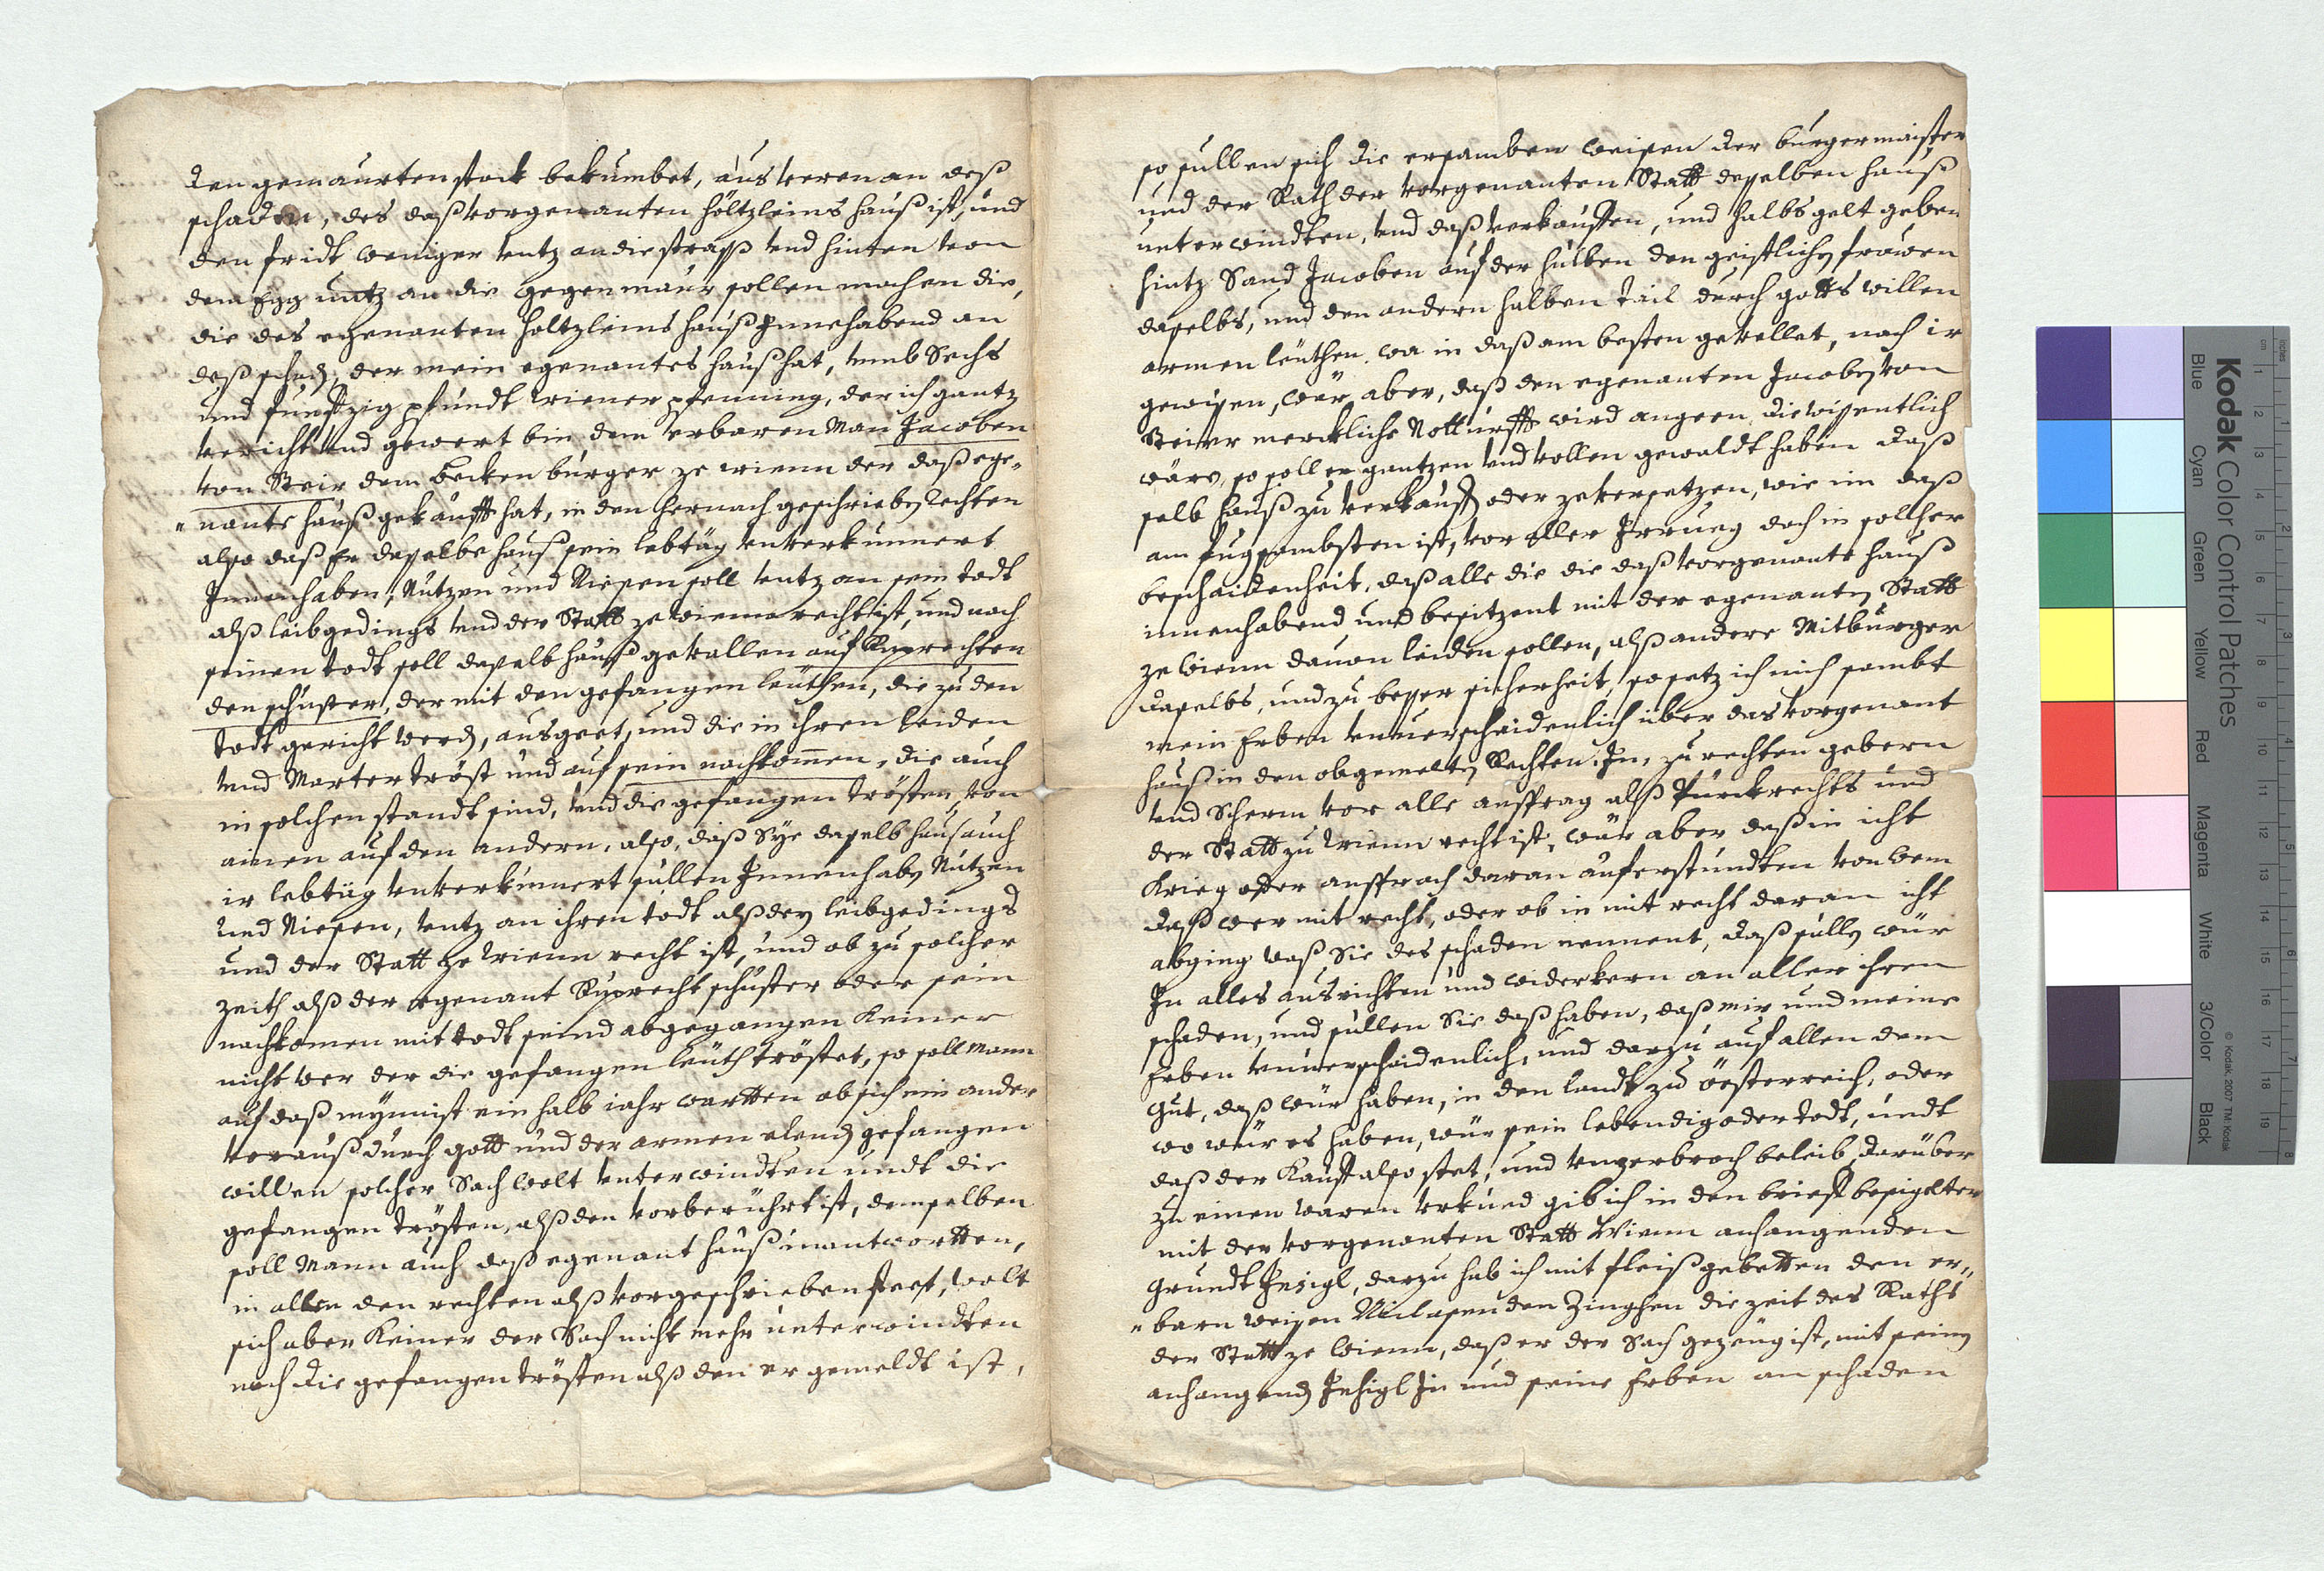 den gemaurten stock bekumbet, auskeren an deß
schaden, des daß vorgenanten Höltzleins hauß ist, und
den fridt weniger untz an die strass und hinten von
dem Egg untz an die gegenmaur sollen machen die,
die des egenanten Holtzleins hauß Innehabend an
deß schadn, der mein egenantes hauß hat, umb Sechs
und funffzig pfundt wiener pfenning, der ich gantz
vericht und gewert bin, dem erbaren Man Jacoben
von Steir dem becken burger ze wienn der daß ege-
„nante hauß gekaufft hat, in den hernach geschrieben rechten
also daß Er dasselbe hauß sein lebtäg unverkumert
Innenhaben, Nutzen und Niessen soll untz an sein todt
alß leibgedings und der Statt ze wienn recht ist, und nach
seinen todt soll dasselb hauß gevallen auf Ruprechten
den schuster, der mit den gefangen leuthen, die zu den
todt gericht werdn, ausgeet, und die in ihren leiden
und Marter tröst und auf sein nachkommen, die auch
in solchen standt sind, und die gefangen trösten, von
ainen auf den andern, also, daß Sye dasselb haus auch
ir lebtäg unverkumert sullen Innenhabn Nutzen
und Niessen, untz an ihren todt alß den leibgedings
und der Statt ze wienn recht ist, und ob zu solcher
zeith alß der egenant Ruprecht schuster oder sein
nachkomen mit todt seind abgegangen Keiner
nicht wer der die gefangen leuth tröstet, so soll mann
auf daß mynnist ein halb iahr wartten ob sich ein ander
voraus durch gott und der armen elendn gefangen
willen solcher Sach wolt unterwindten undt die
gefangen trösten, alß den vorberührt ist, demselben
soll Mann auch daß egenant hauß inantwortten,
in allen den rechten alß vorgeschrieben steet, wolt
sich aber Keiner der Sach nicht mehr unterwindten
noch die gefangen trösten alß den er gemeldt ist,
so sullen sich die ersamben weisen der burgermaister
und der Rath der vorgenanten Statt desselben hauß
unterwindten, und daß verkauffen, und halbs gelt geben
hintz Sand Jacoben auf der hulben den geistlichn frawen
daselbs, und den andern halben tail durch gotts willen
armen leuthen. wa in daß am besten gevellet, nach ir
gewissen, wär aber, daß den egenanten Jacobn von
Steir merckliche Notturfft wird angeen, die wissentlich
wäre, so soll er gantzen und vollen gewaldt haben daß
selb hauß zu verkauffn oder ze versetzen, wie im daß
am fuegsambsten ist, vor aller Irrung doch in sollcher
beschaidenheit, daß alle die die daß vorgenante hauß
innenhabend und besitzent mit der egenantn Statt
ze wienn davon leiden sollen, alß andere Mitburger
daselbs, und zu besser sicherheit, so setz ich mich sambt
mein Erben unuerschaidenlich über das vorgenant
hauß in den obgemeltn Rechten. In, zu rechten gebern
und Scherm vor alle ansprag alß Purckrechts und
der Statt zu wienn recht ist, wär aber daß in icht
Krieg oder ansprach daran auferstundten von wem
daß wer mit recht, oder ob in mit recht daran icht
abging waß Sie des schaden nement, daß sulln wür
In alles ausrichten und widerkern an aller ihren
schaden, und sullen Sie daß haben, daß mir und meine
Erben unuerschaidenlich, und darzu auf allen dem
Gut, daß wür haben, in den landt zu öesterreich, oder
wo wür es haben, wür sein lebendig oder todt, undt
daß der Kauff also stet, und unzerbroch beleib, darüber
zu einen waren urkund gib ich in den brieff besigelter
mit der vorgenanten Statt Wienn anhangenden
Grundt Insigl, darzu hab ich mit fleiß gebetten den er„
„barn weisen Niclasen den Zinghen die zeit des Raths
der Statt ze wienn, daß er der Sach gezeug ist, mit seinn
anhangendn Insigl Jn und seine Erben an schaden
Kodak Color Control Patches
© Kodak, 2007 TM: Kodak
Blue Cyan Green Yellow Red Magenta White 3/Color Black
inches 1 2 3 4 5 6 7 8
cm 1 2 3 4 5 6 7 8 9 10 11 12 13 14 15 16 17 18 19